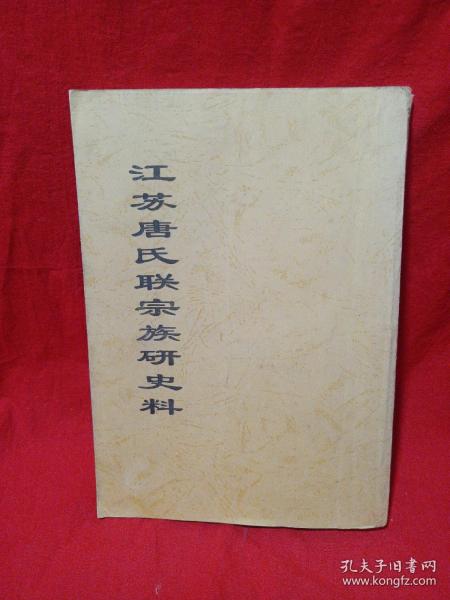 江苏唐氏联宗族研史料
孔夫子旧书网
www.kongfz.com